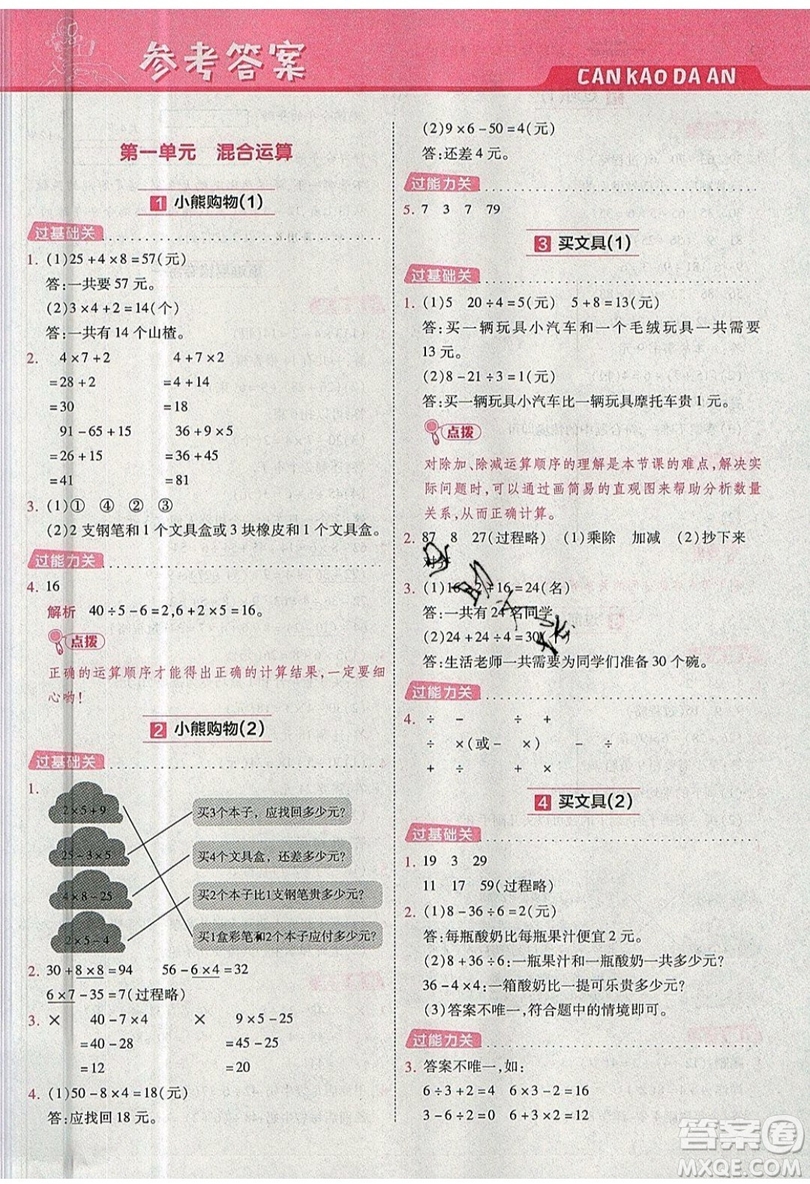 参考答案
CAN KAO DA AN
第一单元 混合运算
1 小熊购物(1)
过基础关
1. (1)25+4×8=57(元)
答:一共要 57 元。
(2)3×4+2=14(个)
答:一共有 14 个山楂。
2. 4×7+2 4×7-2
=28+2 =20-2
=30 =18
91-65+15 36+9×5
=26+15 =36+45
=41 =81
3. (1)① ④ ② ③
(2)2 支钢笔和 1 个文具盒或 3 块橡皮和 1 个文具盒。
过能力关
4. 16
解析 40÷5-6=2,6+2+…=16。
点拨
正确的运算顺序才能得出正确的计算结果,一定要细
心哟!
2 小熊购物(2)
过基础关
1.
2×5+9
25-3×5
4×8-25
2×5-4
买3个本子,应找回多少元?
买4个文具盒,还差多少元?
买2个本子比1支钢笔贵多少元?
买1盒彩笔和2个本子应付多少元?
2. 30+8×8=94 56-6×4=32
6×7-35=7(过程略)
3. × 40-7×4 × 9×5-25
=40-28 =45-25
=12 =20
4. (1)50-8×4=18(元)
答:应找回 18 元。
(2)9×6-50=4(元)
答:还差 4 元。
过能力关
5. 7 3 7 79
3 买文具(1)
过基础关
1. (1)5 20÷4=5(元) 5+8=13(元)
答:买一辆玩具小汽车和一个毛绒玩具一共需要
13 元。
(2)8-21÷3=1(元)
答:买一辆玩具小汽车比一辆玩具摩托车贵 1 元。
点拨
对除加、除减运算顺序的理解是本节课的难点,解决实
际问题时,可以通过画简易的直观图来帮助分析数量
关系,从而正确计算。
2. 87 8 27(过程略) (1)乘除 加减 (2)抄下来
对齐
3. (1)16÷2+16=24(名)
答:一共有 24 名同学。
(2)24+24÷4=30(个)
答:生活老师一共需要为同学们准备 30 个碗。
过能力关
4. ÷ ÷ ÷ -
÷ ×(或÷ -) × ÷
÷ + + ÷
4 买文具(2)
过基础关
1. 19 3 29
11 17 59(过程略)
2. (1)8-36÷6=2(元)
答:每瓶酸奶比每瓶果汁便宜 2 元。
(2)8+36÷6=一瓶果汁和一瓶酸奶一共多少元?
36-4×4=一箱酸奶比一提可乐贵多少元?
(3)答案不唯一,符合题中的情境即可。
过能力关
3. 答案不唯一,如:
6÷3+2=4 6×3-2×8=2
3-6÷6=2 0÷6+0=0
答案圈
MXQE.COM